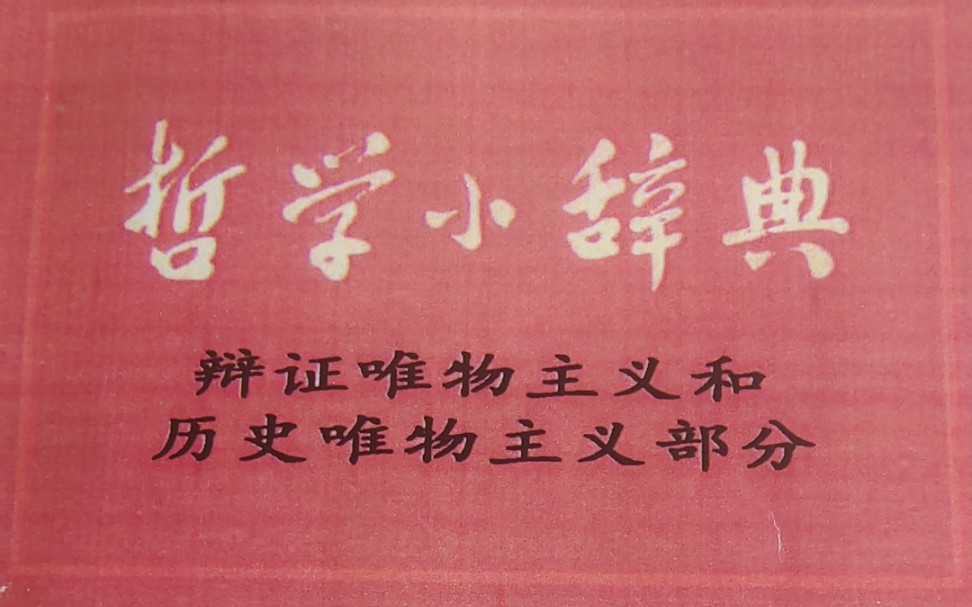 哲学小辞典
辩证唯物主义和
历史唯物主义部分